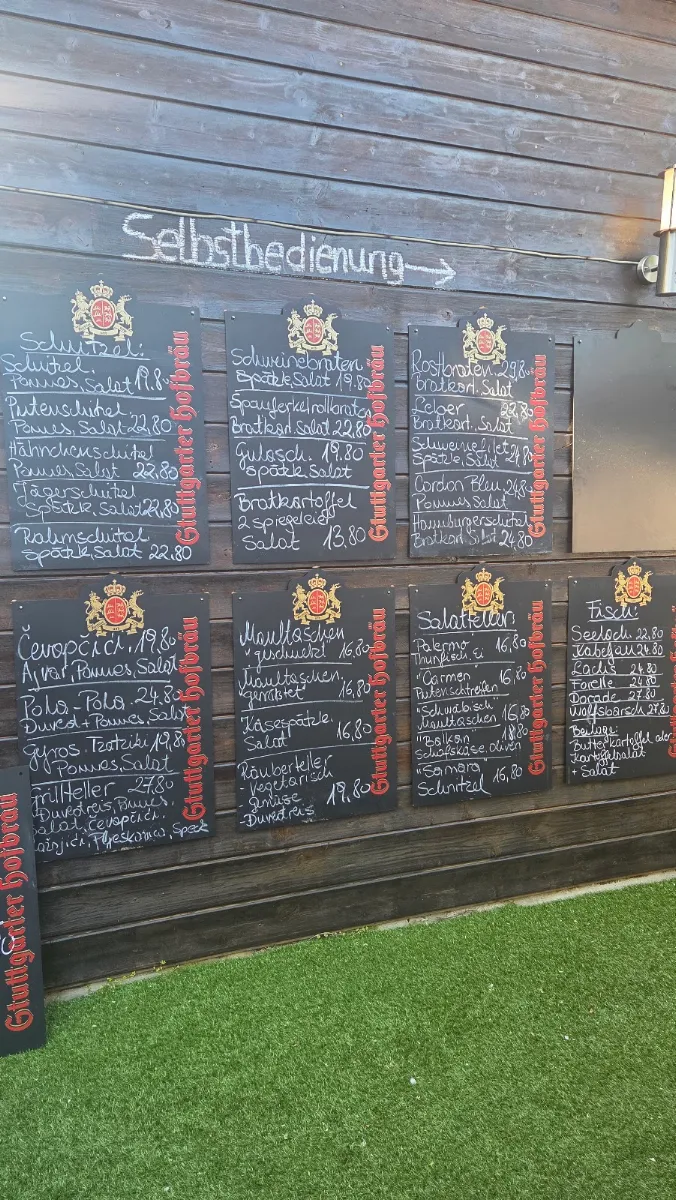 Selbstbedienung →
Schnitzel:
Schnitzel.
Pommes, Salat 19.80
Putenschnitzel
Pommes, Salat 22,80
Hähnchenschnitzel
Pommes, Salat 22,80
Jägerschnitzel
Spätzle, Salat 22,80
Rahmschnitzel
Spätzle, Salat 22.80
Stuttgarter Hofbräu
Schweinebraten
Spätzle, Salat 19,80
Spanferkelrollbraten
Bratkart. Salat 22,80
Gulasch. 19,80
Spätzle Salat
Bratkartoffel
2 Spiegeleier
Salat 13,80
Stuttgarter Hofbräu
Rostbraten 29,80
Bratkart. Salat
Leber 22,80
Bratkart. Salat
Schweinefilet
Spätzle, Salat 24,80
Cordon Bleu 24,80
Pommes Salat
Hamburgerschnitzel
Bratkart. Salat 24,80
Stuttgarter Hofbräu
Čevapčići 19,80
Ajvar, Pommes, Salat
Pola-Pola 24,80
Duved + Pommes, Salat
Gyros. Tzatziki 19,80
Pommes, Salat
Grillteller 27,80
Duvedreis, Pommes,
Salat, Čevapčići,
Speck
Stuttgarter Hofbräu
Maultaschen
geschmelzt 16,80
Maultaschen
geröstet 16,80
Käsespätzle.
Salat 16,80
Räuberteller
- vegetarisch
Gemüse
Duvedreis 19,80
Stuttgarter Hofbräu
Salatteller:
"Palermo" 16,80
Thunfisch, Ei
"Carmen" 16,80
Putenstreifen
"Schwäbisch"
Maultaschen 16,80
"Balkan" 18,80
Schafskäse, Oliven
"Samara" 16,80
Schnitzel
Stuttgarter Hofbräu
Fisch:
Seelach. 22,80
Kabeljau 24.80
Lachs 24.80
Forelle 24.80
Dorade 27.80
Wolfsbarsch 27.80
Beilage:
Butterkartoffel oder
Kartoffelsalat
+ Salat
Stuttgarter Hofbräu